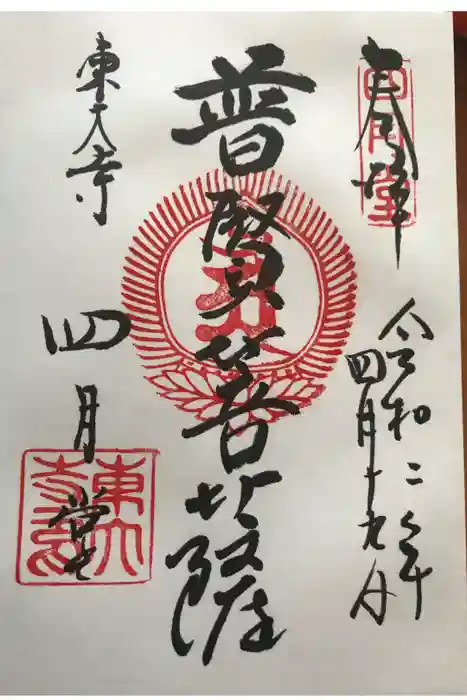 奉拝
四月堂
令和二年
四月十九日
普賢菩薩
東大寺
四月堂